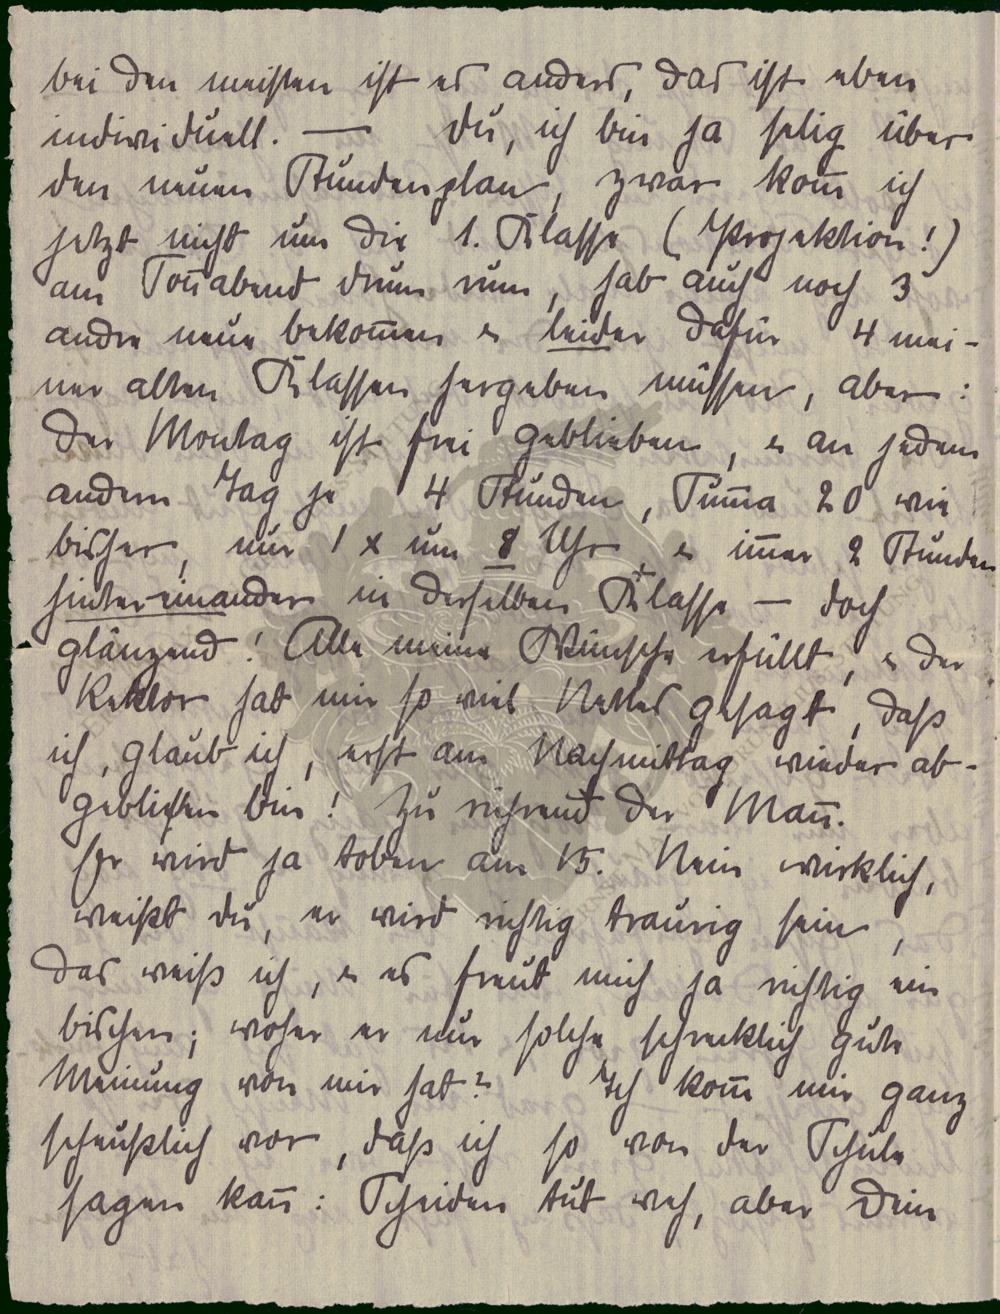 bei den meisten ist es anders, das ist eben
individuell. — Du, ich bin ja selig über
den neuen Stundenplan, zwar kom̄ ich
jetzt nicht um die 1. Klasse (Projektion!)
am Son̄abend drum rum, hab auch noch 3
andre neue bekom̄en & leider dafür 4 mei-
ner alten Klassen hergeben müssen, aber:
Der Montag ist frei geblieben, & an jedem
andern Tag je 4 Stunden, Sum̄a 20 wie
bisher, nur 1 x um 8 Uhr & im̄er 2 Stunden
hintereinander in derselben Klasse — doch
glänzend! Alle meine Wünsche erfüllt, & der
Rektor hat mir so viel Nettes gesagt, daß
ich, glaub ich, erst am Nachmittag wieder ab-
geblichen bin! Zu rührend der Man̄.
Er wird ja toben am 15. Nein wirklich,
weißt du, er wird richtig traurig sein,
das weiß ich, & es freut mich ja richtig ein
bischen; woher er nur solche schrecklich gute
Meinung von mir hat? Ich kom̄ mir ganz
scheußlich vor, daß ich so von der Schule
sagen kan̄: Scheiden tut weh, aber Dein